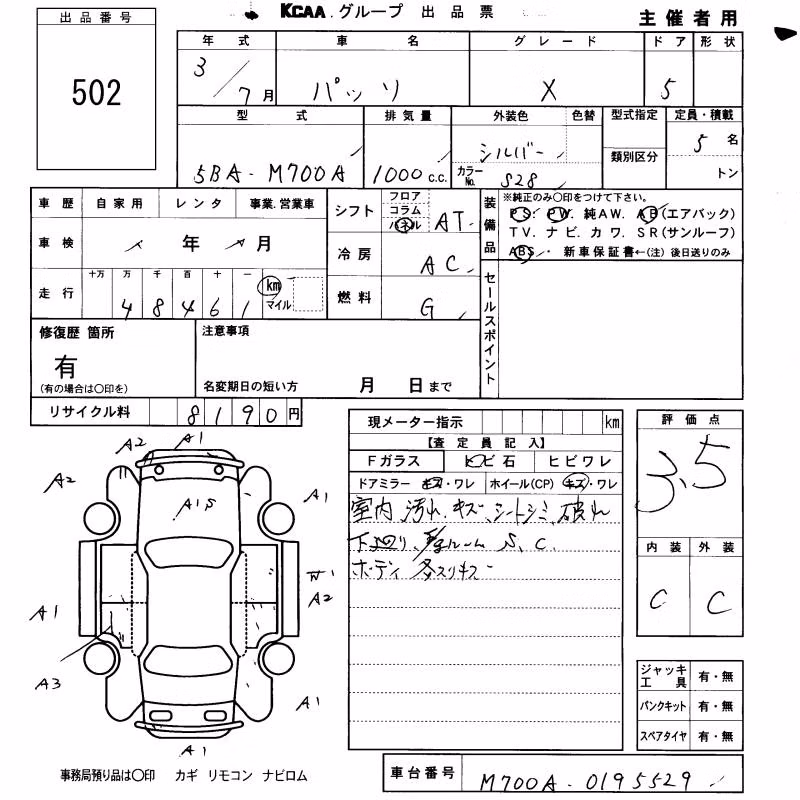 KCAA.グループ 出品票
主催者用
出品番号
502
年式 車名 グレード ドア 形状
3/7月 パッソ X 5
型式 排気量 外装色 色替 型式指定 定員・積載
5BA-M700A 1000c.c. シルバー 類別区分 5名
カラーNo. S28 トン
車歴 自家用 レンタ 事業.営業車
車検 年 月
走行 十万 万 千 百 十 一 km マイル
48461
シフト フロア コラム パネル AT
冷房 AC
燃料 G
装備品
※純正のみ〇印をつけて下さい。
PS. PW. 純AW. AB(エアバック)
TV. ナビ. カワ. SR(サンルーフ)
ABS. 新車保証書←(注)後日送りのみ
セールスポイント
修復歴 箇所
有
(有の場合は〇印を)
注意事項
名変期日の短い方 月 日まで
リサイクル料 8190円
現メーター指示 km
【査定員記入】
Fガラス トビ石 ヒビワレ
ドアミラー キズ・ワレ ホイール(CP) キズ・ワレ
室内 汚れ、キズ、シートシミ、破れ
下廻り、ルーム S、C
ボディ スリキズ
評価点
3.5
内装 外装
C C
ジャッキ工具 有・無
パンクキット 有・無
スペアタイヤ 有・無
A2 A1
A2
A1S
A1
W1
A2
A1
A3
A1
A1
事務局預り品は〇印 カギ リモコン ナビロム
車台番号 M700A-0195529